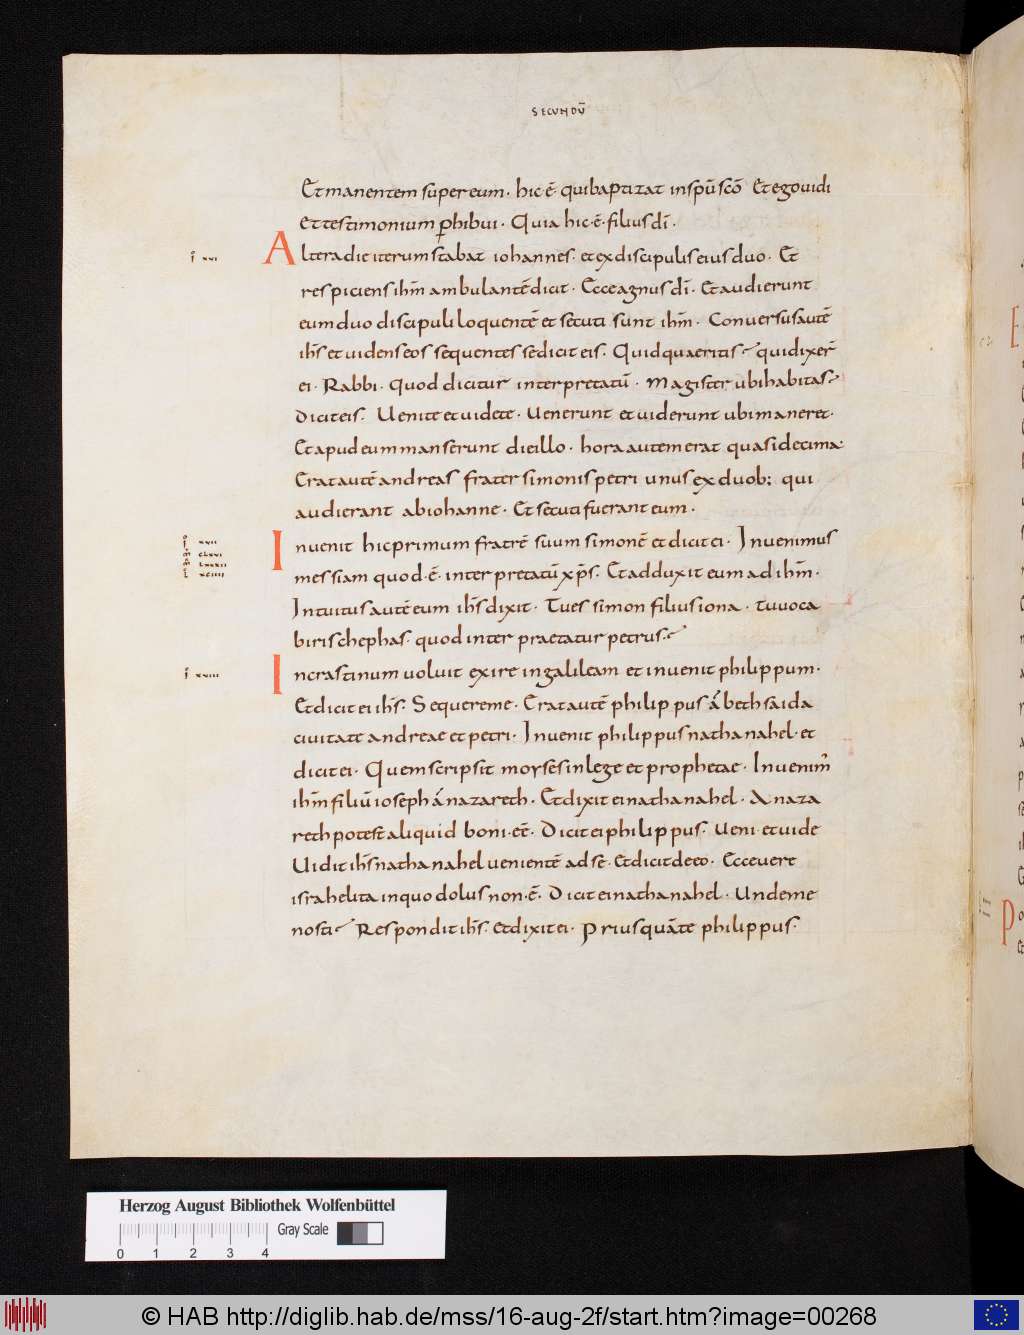 SECUNDŪ
Et manentem super eum · hic · ē · qui baptizat in spū scō Et ego vidi
et testimonium ꝑhibui · Quia hic · ē · filius dī ·
Altera die iterum stabat iohannes · et ex discipulis eius duo · Et
respiciens ihm̄ ambulantē dicit · Ecce agnus dī · Et audierunt
eum duo discipuli loquentē et secuti sunt ihm̄ · Conversus autē
ihs̄ et videns eos sequentes se dicit eis · Quid quaeritis qui dixer̄
ei · Rabbi · quod dicitur interpretatū · Magister ubi habitas
dicit eis · Uenite et videte · Uenerunt et uiderunt ubi maneret ·
Et apud eum manserunt die illo · hora autem erat quasi decima ·
Erat autē andreas frater simonis petri unus ex duob; qui
audierant ab iohanne · Et secuti fuerant eum ·
Invenit hic primum fratrē suum simonē et dicit ei · Invenimus
messiam quod · ē · interpretatū xps̄ · Et adduxit eum ad ihm̄ ·
Intuitus autē eum ihs̄ dixit · Tu es simon filius iona · tu uoca
biris chephas · quod interpraetatur petrus
In crastinum uoluit exire in galileam et invenit philippum ·
Et dicit ei ihs̄ · Sequere me · Erat autē philippus á bethsaida
civitate andreae et petri · Invenit philippus nathanahel · et
dicit ei · Quem scripsit moyses in lege et prophetae · Invenim̄
ihm̄ filiū ioseph á nazareth · Et dixit ei nathanahel · A naza
reth potest aliquid boni · eē · Dicit ei philippus · Veni · et uide
Uidit ihs̄ nathanahel uenientē ad sē · Et dicit de eo · Ecce vere
israhelita in quo dolus non · ē · Dicit ei nathanahel · Unde me
nosti Respondit ihs̄ · et dixit ei · Priusquā te philippus ·
xvi
xvii
clxvi
lxxxii
xciiii
xviii
Herzog August Bibliothek Wolfenbüttel
Gray Scale
0 1 2 3 4
© HAB http://diglib.hab.de/mss/16-aug-2f/start.htm?image=00268